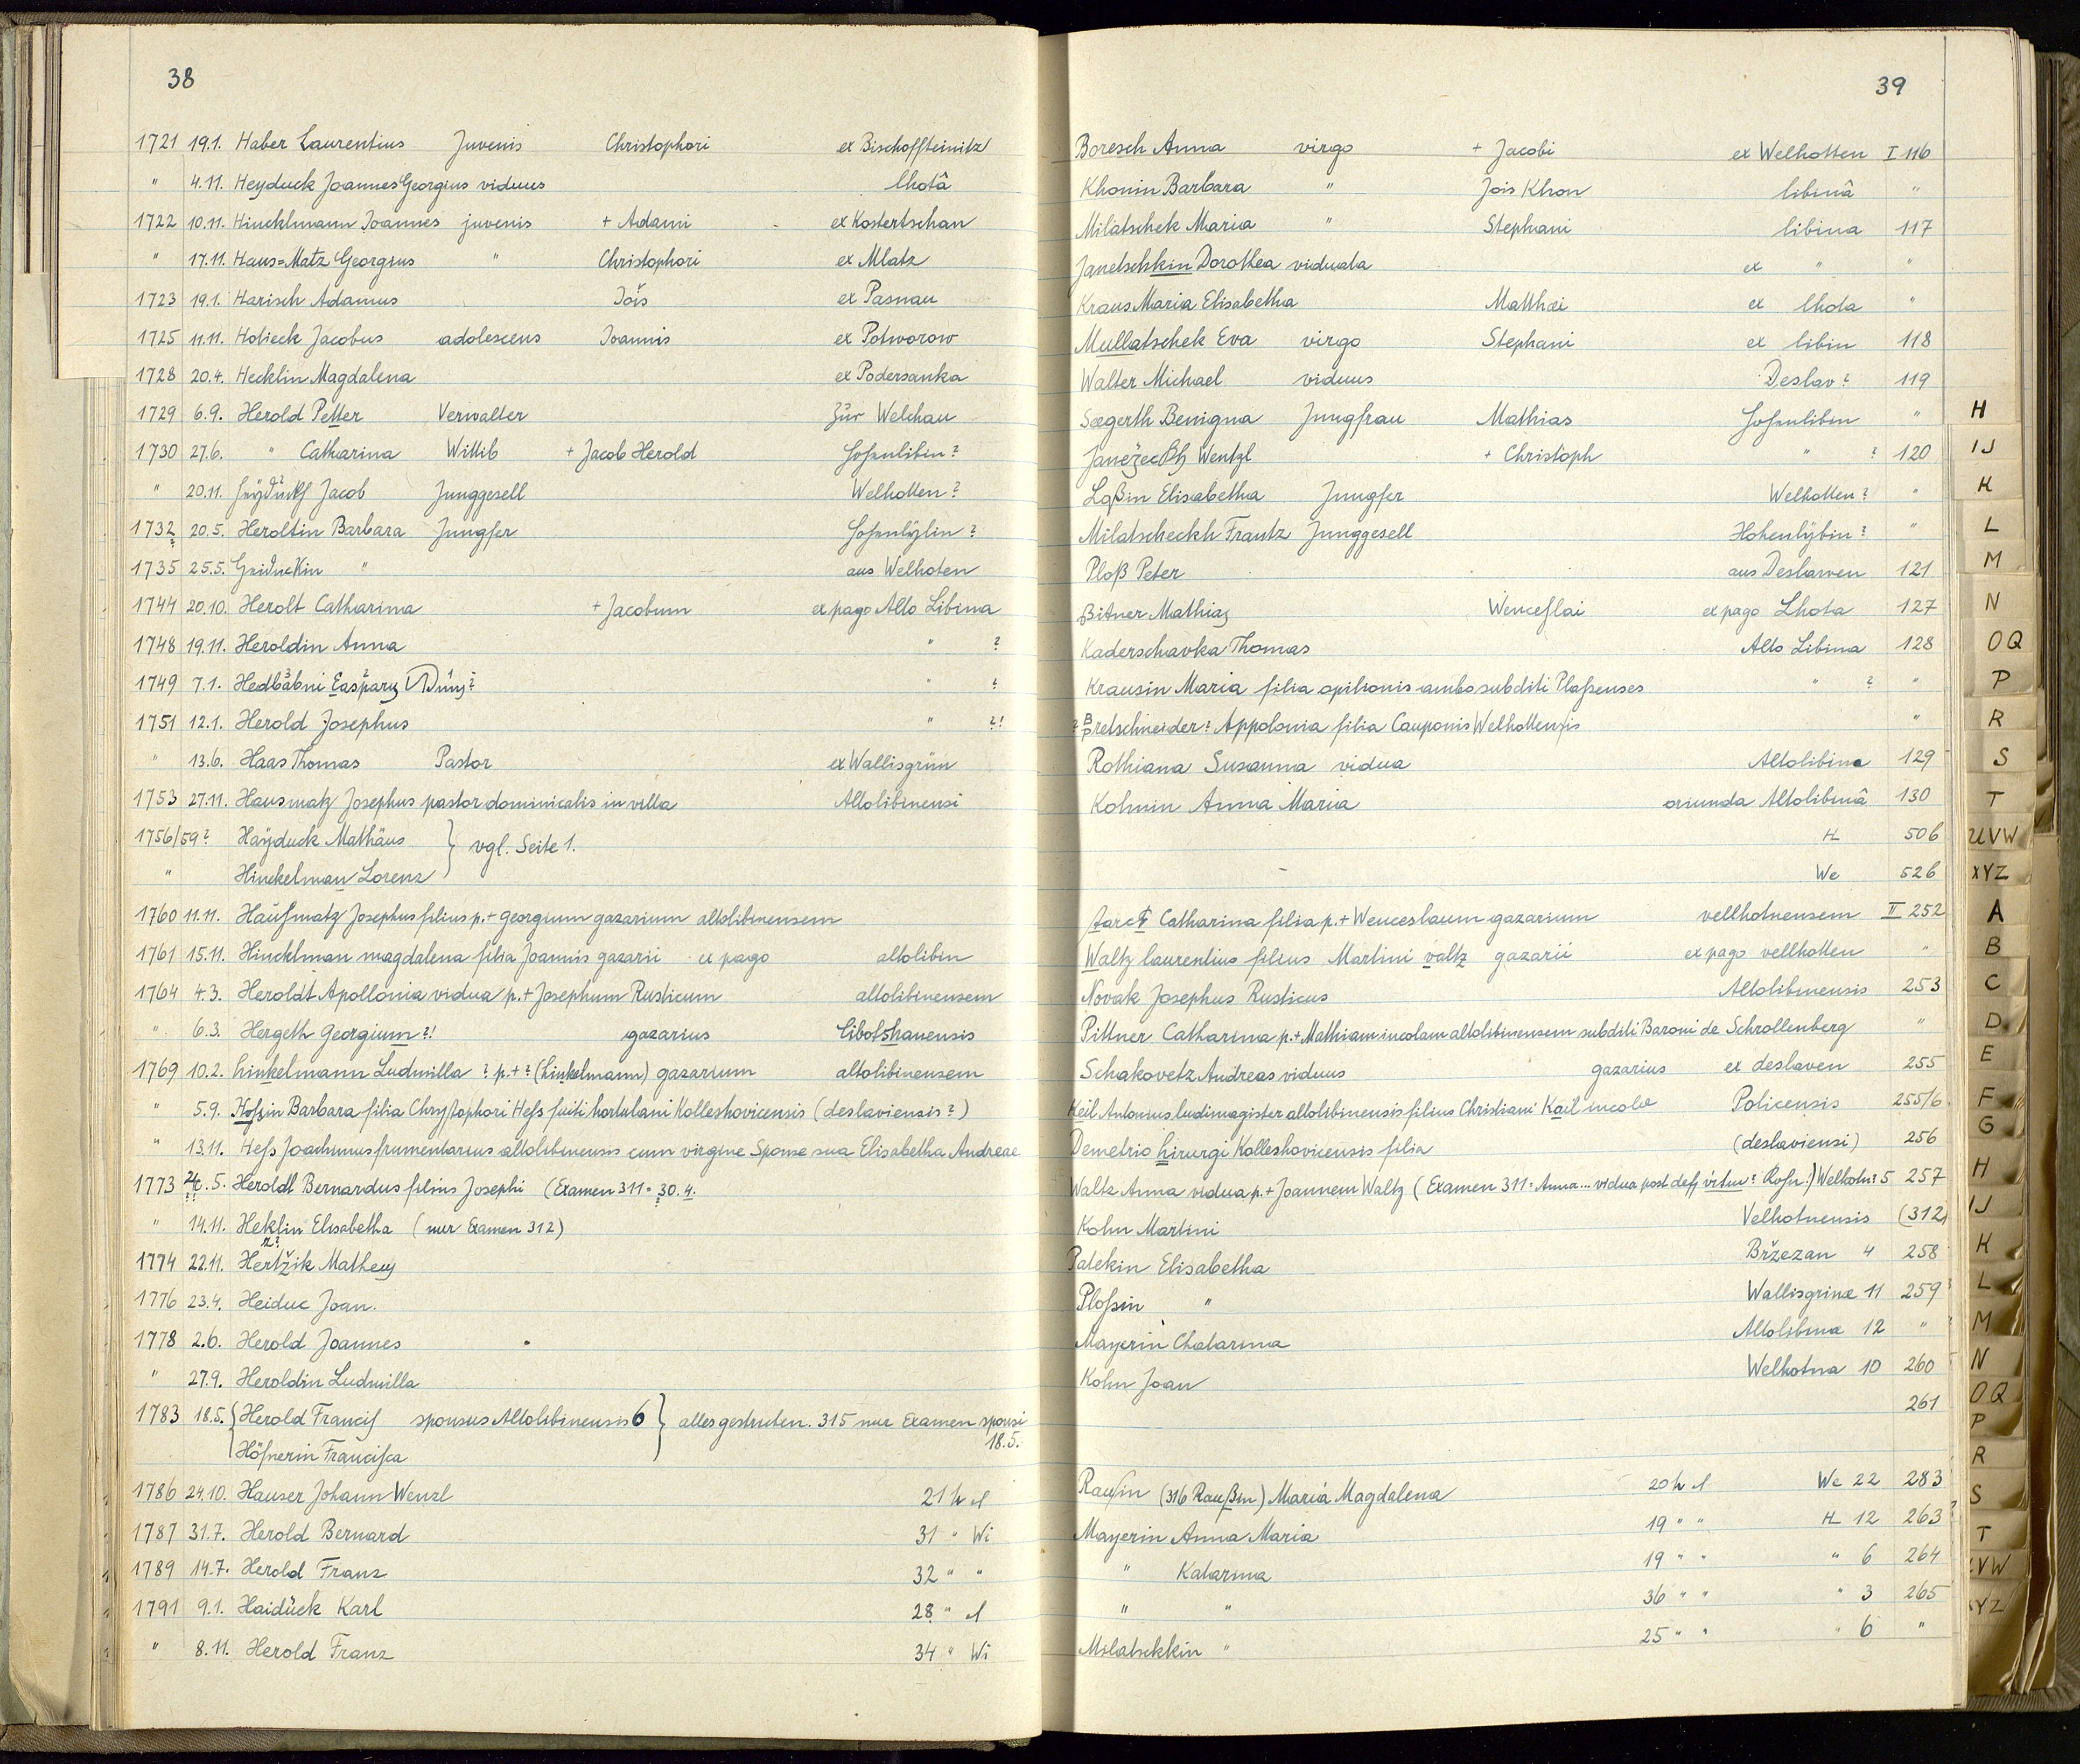 38
1721 19.1. Haber Laurentius Juvenis Christophori ex Bischoffteinitz
" 4.11. Heyduck Joannes Georgius viduus lhotâ
1722 10.11. Hincklmann Joannes juvenis + Adami ex Kostertschan
" 17.11. Haus=Matz Georgius " Christophori ex Mlatz
1723 19.1. Harisch Adamus Jois ex Pasnau
1725 11.11. Holieck Jacobus adolescens Joannis ex Potworow
1728 20.4. Hecklin Magdalena ex Podersanka
1729 6.9. Herold Petter Verwalter zur Welchau
1730 27.6. " Catharina Wittib + Jacob Herold Hohenlibin?
" 20.11. Jacob Junggesell Welhotten?
1732 20.5. Heroltin Barbara Jungfer ?
1735 25.5. " aus Welhoten
1744 20.10. Herolt Catharina + Jacobum ex pago Alto Libina
1748 19.11. Heroldin Anna " ?
1749 7.1. Hedbabni " ?
1751 12.1. Herold Josephus " ?!
" 13.6. Haas Thomas Pastor ex Wallisgrün
1753 27.11. Hausmatz Josephus pastor dominicalis in villa Altolibinensi
1756/59? Haÿduck Mathäus } vgl. Seite 1.
" Hinckelman Lorenz
1760 11.11. Haußmatz Josephus filius p.+ georgium gazarium altolibinensem
1761 15.11. Hincklman magdalena filia Joannis gazarii ex pago altolibin
1764 4.3. Heroldt Apollonia vidua p.+ Josephum Rusticum altolibinensem
" 6.3. Hergeth Georgium?! gazarius libotshanensis
1769 10.2. hinkelmann Ludmilla ? p.+? (Linkelmann) gazarium altolibinensem
" 5.9. Barbara filia Chrystophori Hess hortulani Kolleshovicensis (deslaviensis?)
" 13.11. Hess Joachimus frumentarius altolibinensis cum virgine Sponse sua Elisabetha Andreae
1773 24.5. Heroldt Bernardus filius Josephi (Examen 311= 30.4.
" 14.11. Heklin Elisabetha (nur Examen 312)
1774 22.11. Hertžik Matheus
1776 23.4. Heiduc Joan.
1778 2.6. Herold Joannes
" 27.9. Heroldin Ludmilla
1783 18.5. { Herold Francis sponsus Altolibinensis 6 } alles gestrichen. 315 nur Examen sponsi
18.5.
Hößnerin Francisca
1786 24.10. Hauser Johann Wenzl 21 h l
1787 31.7. Herold Bernard 31 " Wi
1789 14.7. Herold Franz 32 " "
1791 9.1. Haidück Karl 28 " l
" 8.11. Herold Franz 34 " Wi
39
Boresch Anna virgo + Jacobi ex Welhotten I 116
Khonin Barbara " Jois Khon libinâ "
Milatschek Maria " Stephani libina 117
Janetschkin Dorothea viduata ex " "
Kraus Maria Elisabetha Matthæi ex lhota "
Mullatschek Eva virgo Stephani ex libin 118
Walter Michael viduus Deslav? 119
Sægerth Benigna Jungfrau Mathias Hohenlibin "
Wentzl + Christoph " ? 120
Elisabetha Jungfer Welhotten? "
Milatscheckh Frantz Junggesell Hohenlÿbin? "
Ploß Peter aus Deslawen 121
Bitner Mathias Wenceslai ex pago Lhota 127
Kaderschavka Thomas Alto Libina 128
Krausin Maria filia opilionis ambo subditi Plassenses " ? "
? Bretschneider? Appolonia filia Cauponis Welhottensis "
Rothiana Susanna vidua Altolibina 129
Kohnin Anna Maria oriunda Altolibinâ 130
H 506
We 526
Catharina filia p.+ Wenceslaum gazarium vellhotnensem II 252
Waltz laurentius filius Martini valtz gazarii ex pago vellhotten "
Novak Josephus Rusticus Altolibinensis 253
Pittner Catharina p.+ Mathiam incolam altolibinensem subditi Baroni de Schrollenberg "
Schakovetz Andreas viduus gazarius ex deslaven 255
Keil Antonius ludimagister altolibinensis filius Christiani Kail incolæ Policensis 255/6
Demetrio hirurgi Kolleshovicensis filia (deslaviensi) 256
Waltz Anna vidua p.+ Joannem Waltz (Examen 311: Anna... vidua post def virtue? Rosn:) Welhotn? 5 257
Kohn Martini Velhotnensis (312)
Patekin Elisabetha Bržezan 4 258
Plossin " Wallisgrinæ 11 259
Mayerin Chatarina Altolibina 12 "
Kohn Joan Welhotna 10 260
261
Raussin (316 Raußin) Maria Magdalena 20 h l We 22 283
Mayerin Anna Maria 19 " " H 12 263
" Katarina 19 " " " 6 264
" " 36 " " " 3 265
Milatschkin " 25 " " " 6 "
H
IJ
K
L
M
N
OQ
P
R
S
T
UVW
XYZ
A
B
C
D
E
F
G
H
IJ
K
L
M
N
OQ
P
R
S
T
VW
XYZ